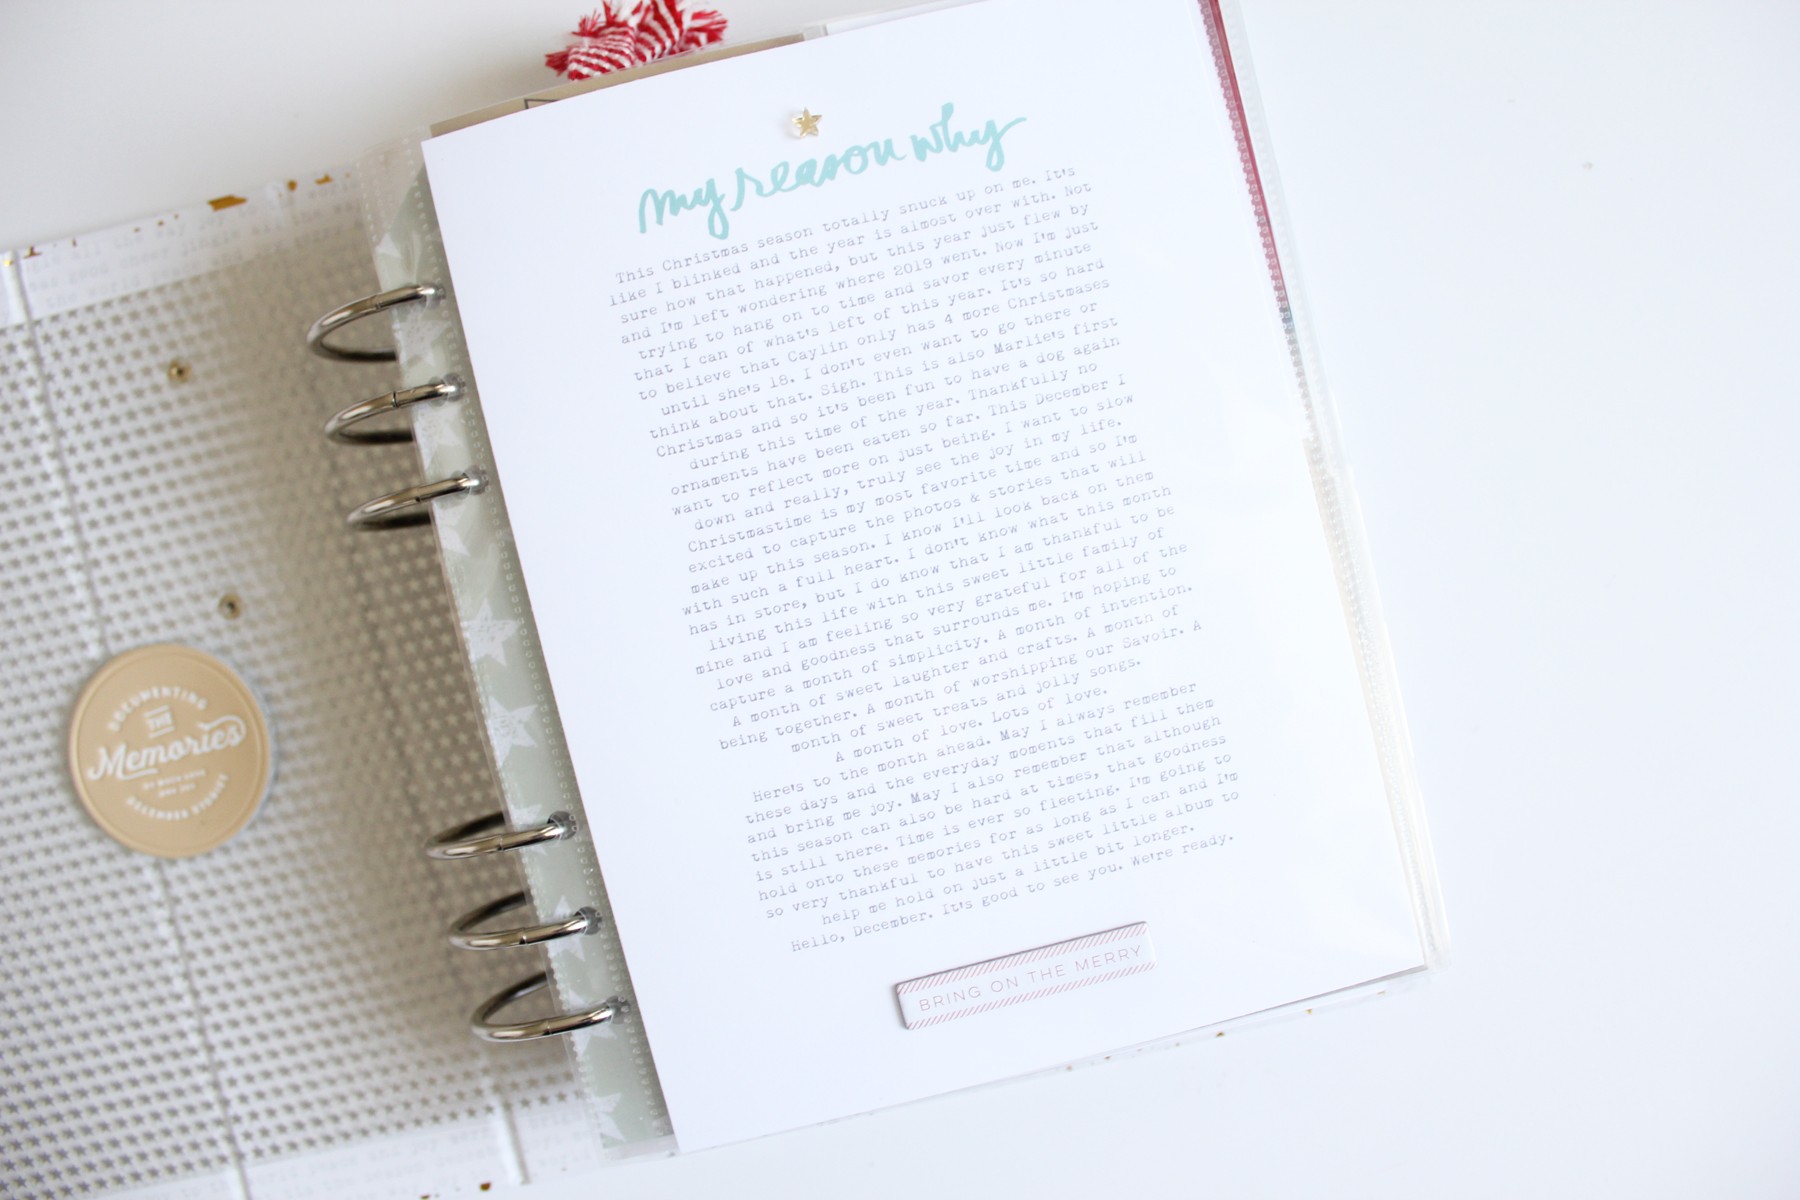 my reason why
This Christmas season totally snuck up on me. It's
like I blinked and the year is almost over with. Not
sure how that happened, but this year just flew by
and I'm left wondering where 2019 went. Now I'm just
trying to hang on to time and savor every minute
that I can of what's left of this year. It's so hard
to believe that Caylin only has 4 more Christmases
until she's 18. I don't even want to go there or
think about that. Sigh. This is also Marlie's first
Christmas and so it's been fun to have a dog again
during this time of the year. Thankfully no
ornaments have been eaten so far. This December I
want to reflect more on just being. I want to slow
down and really, truly see the joy in my life.
Christmastime is my most favorite time and so I'm
excited to capture the photos & stories that will
make up this season. I know I'll look back on them
with such a full heart. I don't know what this month
has in store, but I do know that I am thankful to be
living this life with this sweet little family of
mine and I am feeling so very grateful for all of the
love and goodness that surrounds me. I'm hoping to
capture a month of simplicity. A month of intention.
A month of sweet laughter and crafts. A month of
being together. A month of worshipping our Savoir. A
month of sweet treats and jolly songs.
A month of love. Lots of love.
Here's to the month ahead. May I always remember
these days and the everyday moments that fill them
and bring me joy. May I also remember that although
this season can also be hard at times, that goodness
is still there. Time is ever so fleeting. I'm going to
hold onto these memories for as long as I can and I'm
so very thankful to have this sweet little album to
help me hold on just a little bit longer.
Hello, December. It's good to see you. We're ready.
BRING ON THE MERRY
DOCUMENTING
THE
Memories
DECEMBER STORIES